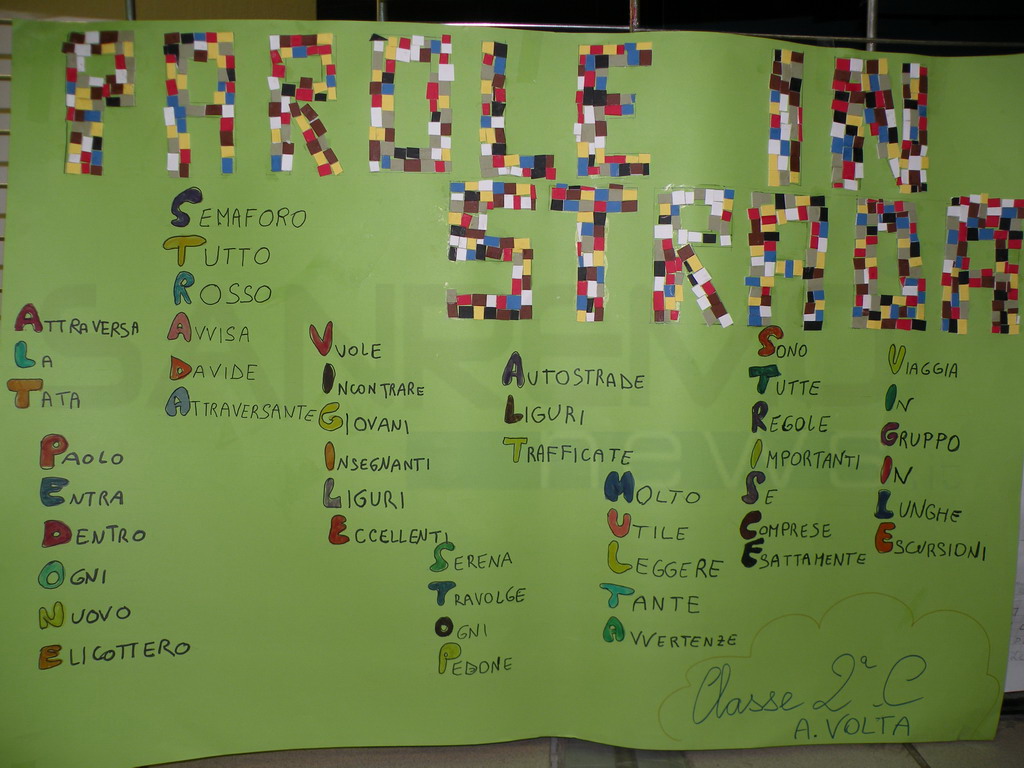 PAROLE IN
STRADA
SEMAFORO
TUTTO
ROSSO
AVVISA
DAVIDE
ATTRAVERSANTE
ATTRAVERSA
LA
TATA
PAOLO
ENTRA
DENTRO
OGNI
NUOVO
ELICOTTERO
VUOLE
INCONTRARE
GIOVANI
INSEGNANTI
LIGURI
ECCELLENTI
SERENA
TRAVOLGE
OGNI
PEDONE
AUTOSTRADE
LIGURI
TRAFFICATE
MOLTO
UTILE
LEGGERE
TANTE
AVVERTENZE
SONO
TUTTE
REGOLE
IMPORTANTI
SE
COMPRESE
ESATTAMENTE
VIAGGIA
IN
GRUPPO
IN
LUNGHE
ESCURSIONI
Classe 2ª C
A. VOLTA
SANREMO
news.it